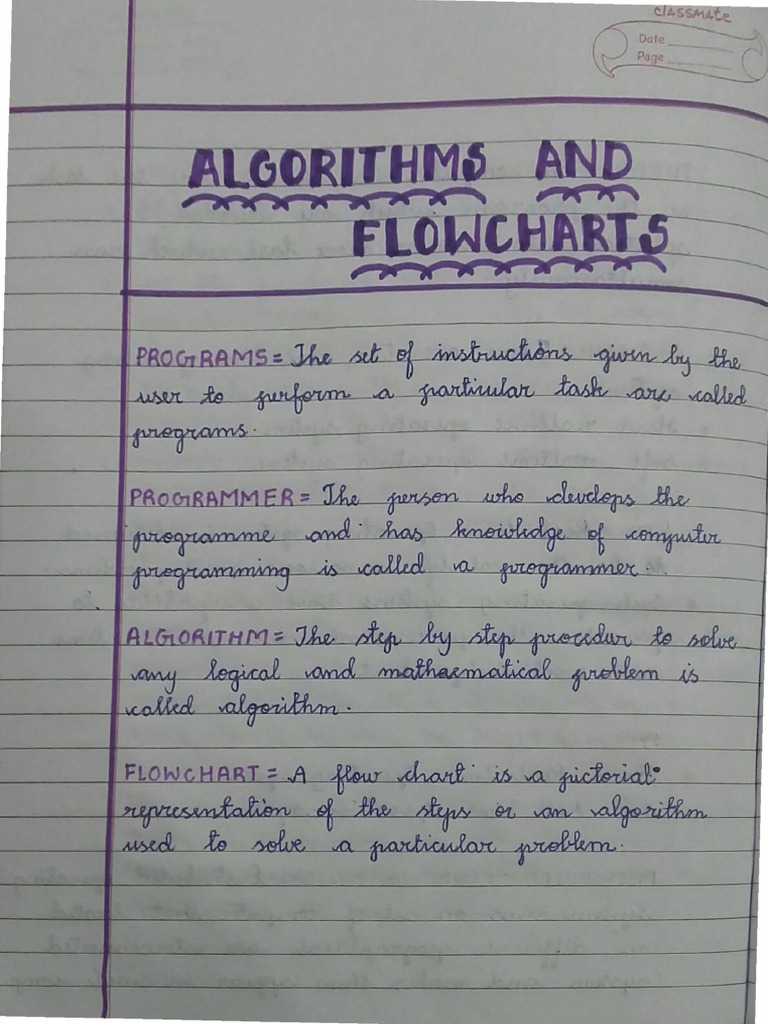 classmate
Date
Page
ALGORITHMS AND
FLOWCHARTS
PROGRAMS = The set of instructions given by the
user to perform a particular task are called
programs.
PROGRAMMER = The person who develops the
programme and has knowledge of computer
programming is called a programmer.
ALGORITHM = The step by step procedur to solve
any logical and mathaematical problem is
called algorithm.
FLOWCHART = A flow chart is a pictorial
representation of the steps or an algorithm
used to solve a particular problem.